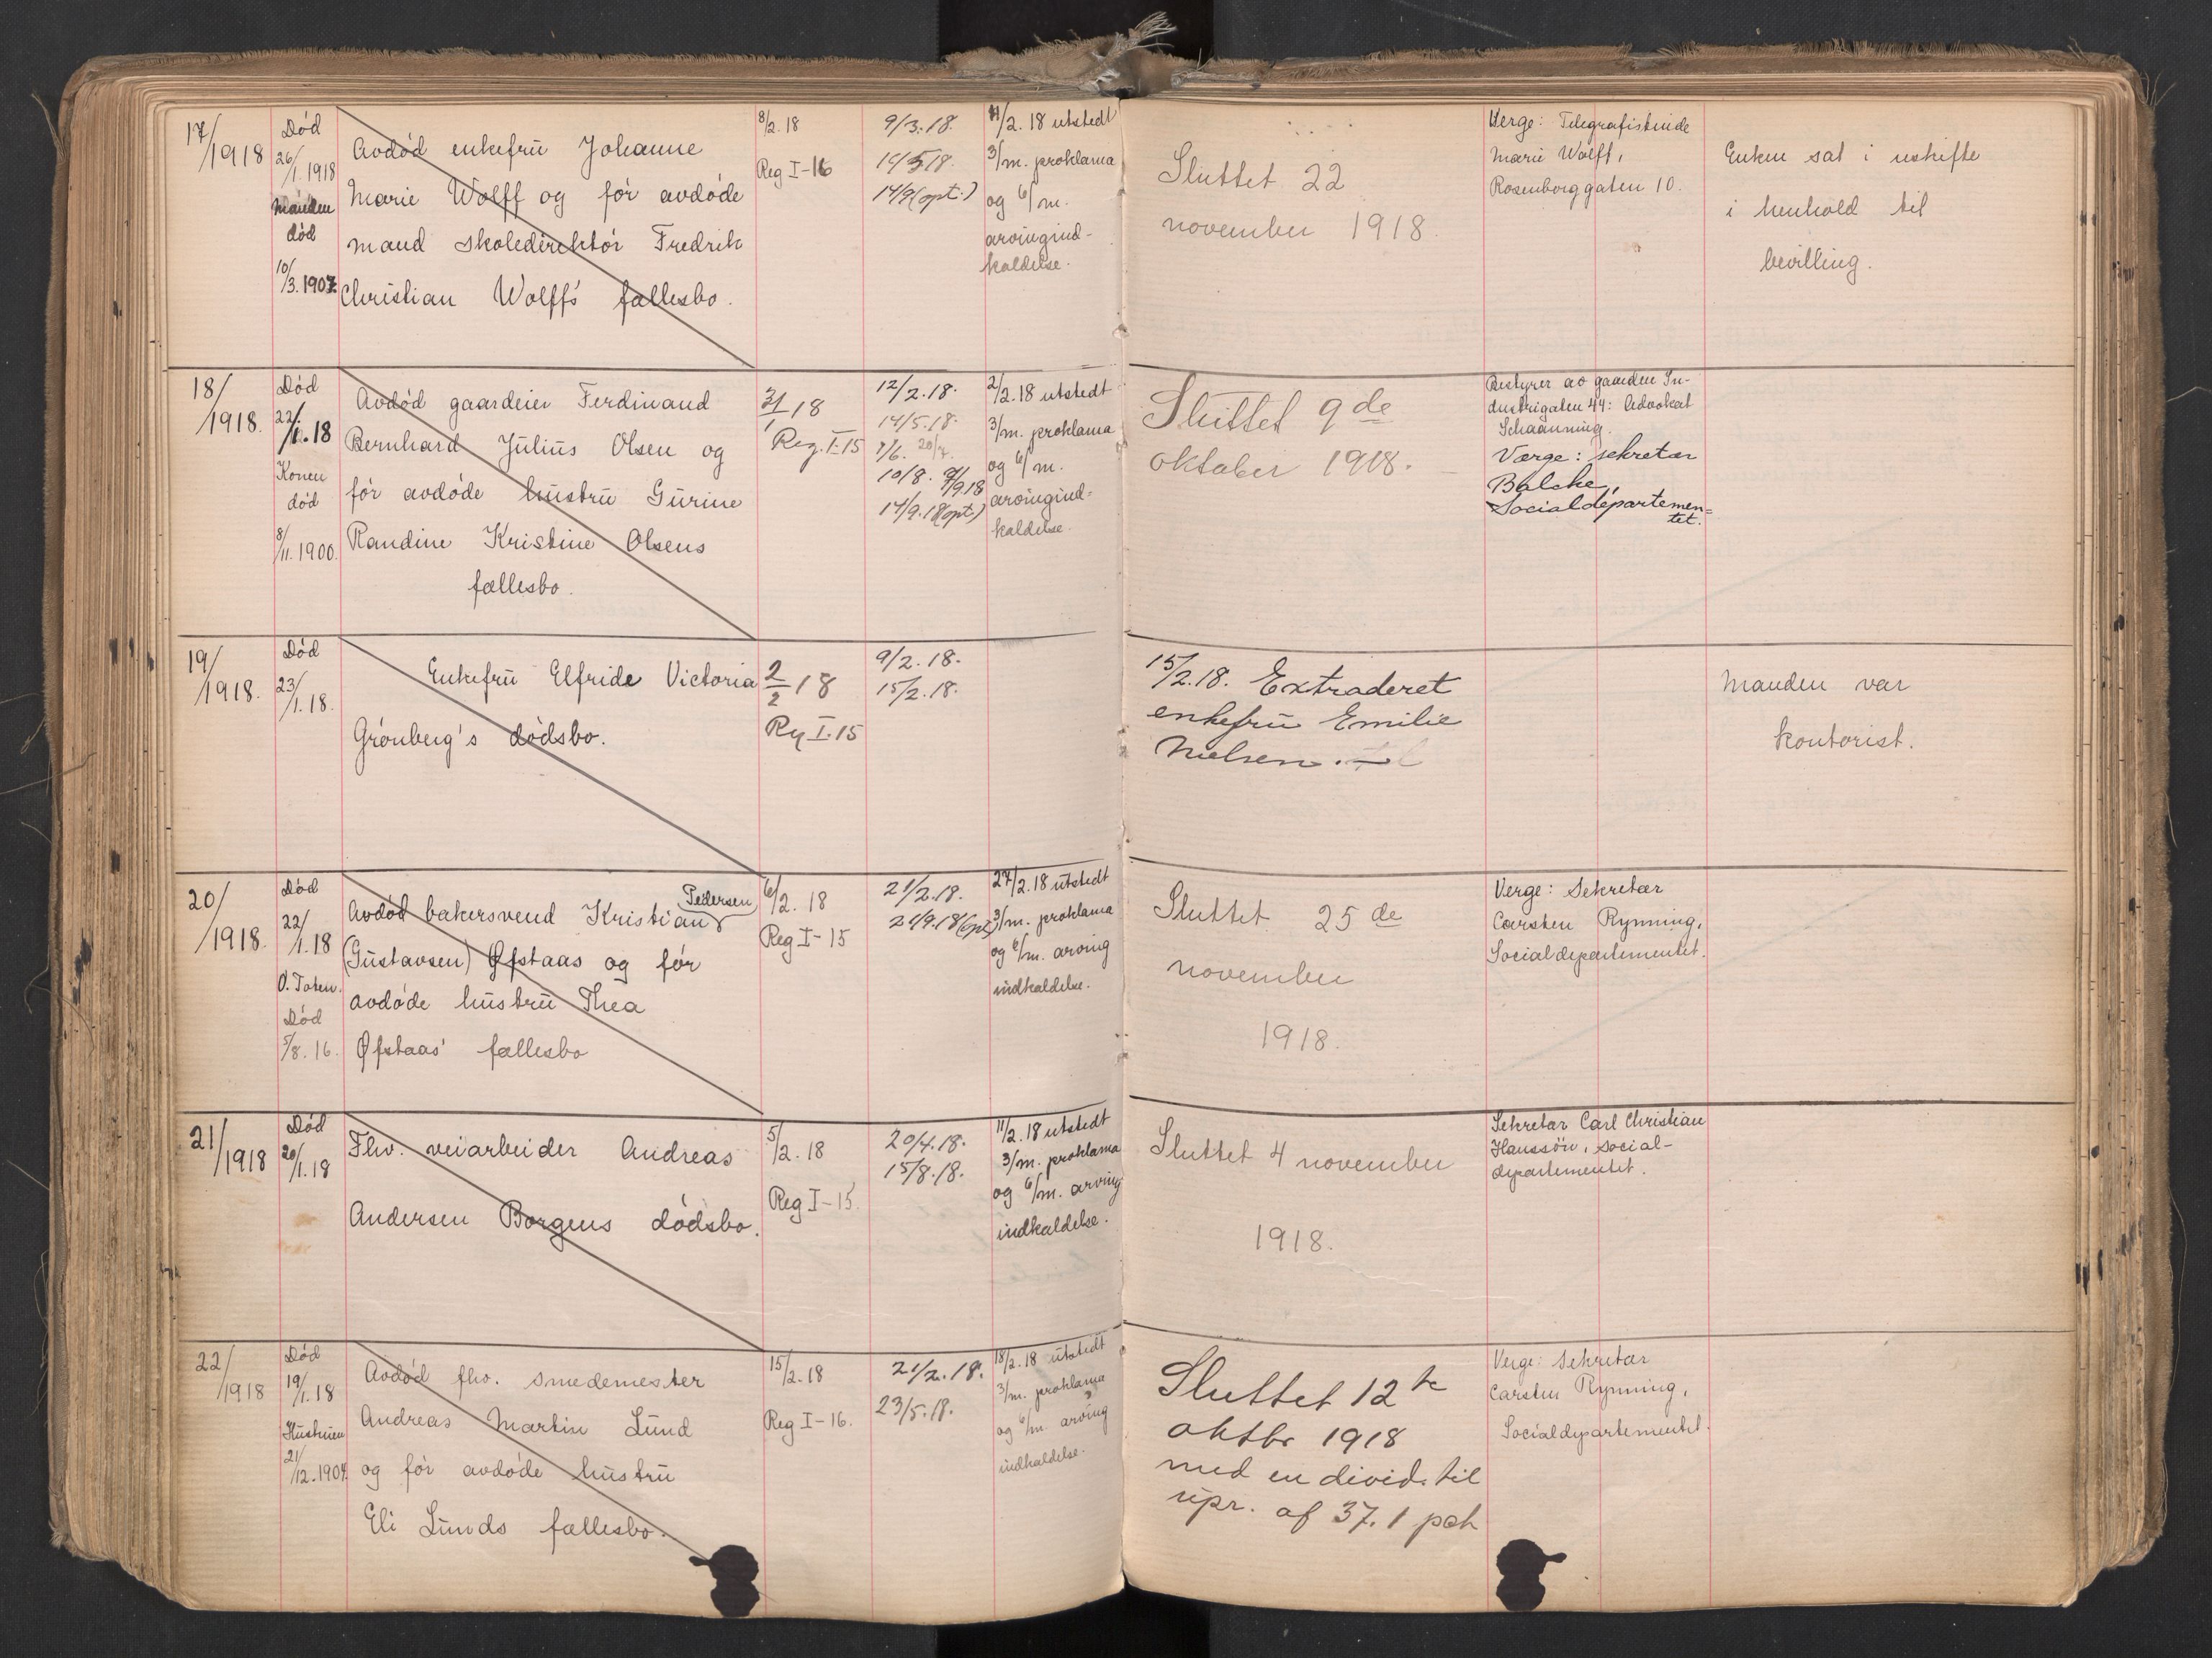 17/
1918
Død
26/1.1918
Manden
død
10/3.1907.
Avdød enkefru Johanne
Marie Wolff og før avdøde
mand skoledirektør Fredrik
Christian Wolff's fællesbo.
8/2.18
Reg I-16
9/3.18.
14/5 18.
14/9 (opt.)
11/2.18 utstedt
3/m. proklama
og 6/m.
arvingind-
kaldelse.
Sluttet 22
november 1918.
Verge: Telegrafistinde
Marie Wolff,
Rosenborggaten 10.
Enken sat i uskifte
i henhold til
bevilling.
18/
1918.
Død
22/1.18
Konen
død
8/11.1900.
Avdød gaardeier Ferdinand
Bernhard Julius Olsen og
før avdøde hustru Gurine
Randine Kristine Olsens
fællesbo.
31/1 18
Reg. I.15
12/2.18.
14/5.18.
7/6. 20/7.
10/8. 9/9.18
14/9.18 (opt.)
2/2.18 utstedt
3/m. proklama
og 6/m.
arvingind=
kaldelse.
Sluttet 9de
oktober 1918.
Bestyrer av gaarden In-
dustrigaten 44: Advokat
Schaanning.
Værge: sekretær
Balcke,
Socialdepartemen=
tet.
19/
1918.
Død
23/1.18.
Enkefru Elfride Victoria
Grönberg's dødsbo.
2/2 18
Reg I.15
9/2.18.
15/2.18.
15/2.18. Extraderet
enkefru Emilie
Nielsen.
Manden var
kontorist.
20/
1918.
Død
22/1.18
Ø. Toten.
Død
5/8.16.
Pedersen
Avdød bakersvend Kristian
(Gustavsen) Øfstaas og før
avdøde hustru Thea
Øfstaas' fællesbo
6/2.18
Reg I-15
21/2.18.
21/9.18 (opt)
27/2.18 utstedt
3/m. proklama
og 6/m. arving
indkaldelse.
Sluttet 25de
november
1918.
Verge: Sekretær
Carsten Rynning,
Socialdepartementet.
21/
1918
Død
20/1.18
Fhv. veiarbeider Andreas
Andersen Borgens dødsbo.
5/2.18
Reg I-15.
20/4.18.
15/8.18.
11/2.18 utstedt
3/m. proklama
og 6/m. arving
indkaldelse.
Sluttet 4 november
1918.
Sekretær Carl Christian
Hanssøn, social-
departementet.
22/
1918
Død
19/1.18
Hustruen
21/12.1904
Avdød fhv. smedemester
Andreas Martin Lund
og før avdøde hustru
Eli Lunds fællesbo.
15/2.18
Reg I-16.
21/2.18.
23/5.18.
18/2.18 utstedt
3/m. proklama
og 6/m. arving
indkaldelse.
Sluttet 12te
oktbr 1918
med en divid. til
upr. af 37.1 pct
Verge: Sekretær
Carsten Rynning,
Socialdepartementet.